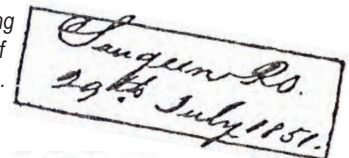 ng
f
.
Saugeen Rs.
29th July 1851.